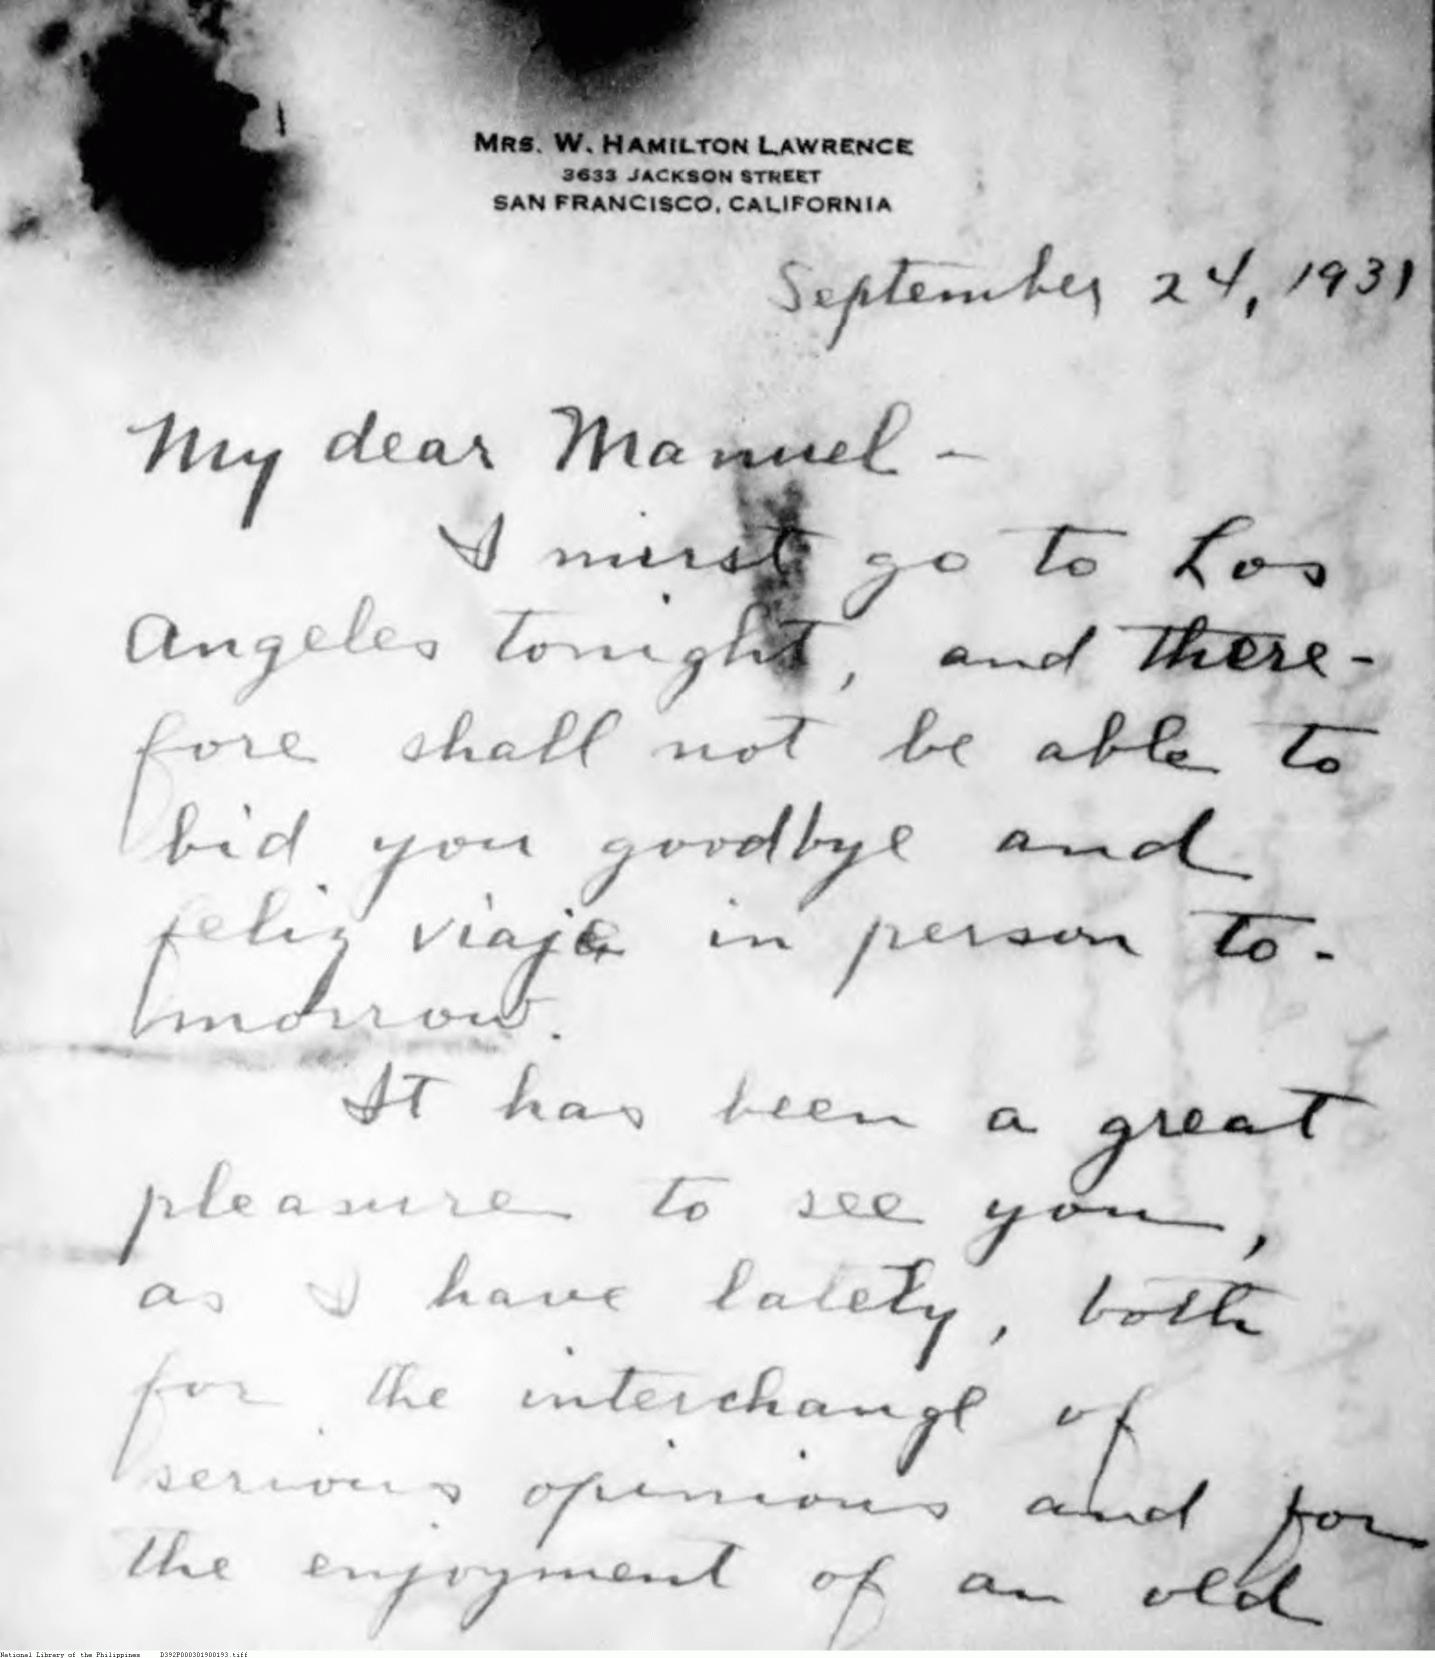 MRS. W. HAMILTON LAWRENCE
3633 JACKSON STREET
SAN FRANCISCO, CALIFORNIA
September 24, 1931
My dear Manuel -
I must go to Los
Angeles tonight, and there-
fore shall not be able to
bid you goodbye and
feliz viaje in person to-
morrow.
It has been a great
pleasure to see you,
as I have lately, both
for the interchange of
serious opinions and for
the enjoyment of an old
National Library of the Philippines D392P000301900193.tiff